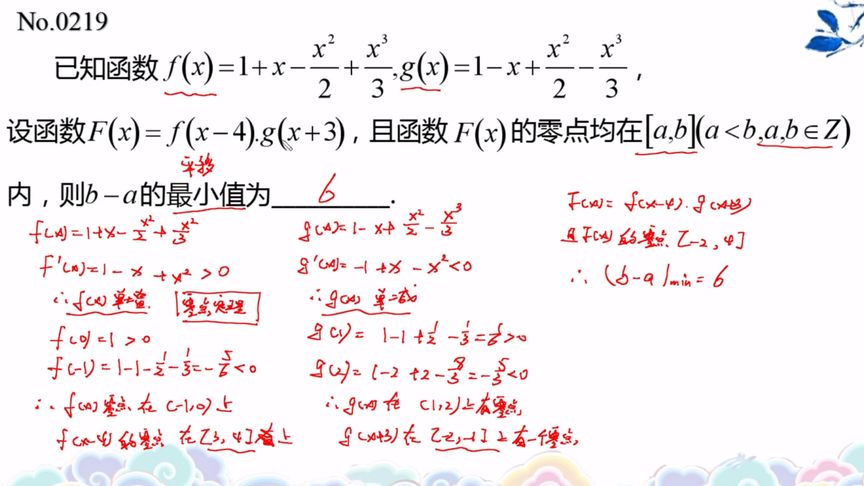 No.0219
已知函数 f(x)=1+x-x²/2+x³/3, g(x)=1-x+x²/2-x³/3,
设函数F(x)=f(x-4).g(x+3)，且函数 F(x)的零点均在[a,b](a<b,a,b∈Z)
平移
内，则b-a的最小值为 6 .
f(x)=1+x-x²/2+x²/3
f'(x)=1-x+x²>0
∴f(x) 单增. 零点定理
f(0)=1>0
f(-1)=1-1-1/2-1/3=-5/6<0
∴f(x)零点在(-1,0)上
f(x-4)的零点在[3,4]上
g(x)=1-x+x²/2-x³/3
g'(x)=-1+x-x²<0
∴g(x) 单减
g(1)=1-1+1/2-1/3=1/6>0
g(2)=1-2+2-8/3=-5/3<0
∴g(x)在(1,2)上有零点,
g(x+3)在[-2,-1]上有一个零点,
F(x)=f(x-4).g(x+3)
且F(x)的零点[-2,4]
∴(b-a)min=6